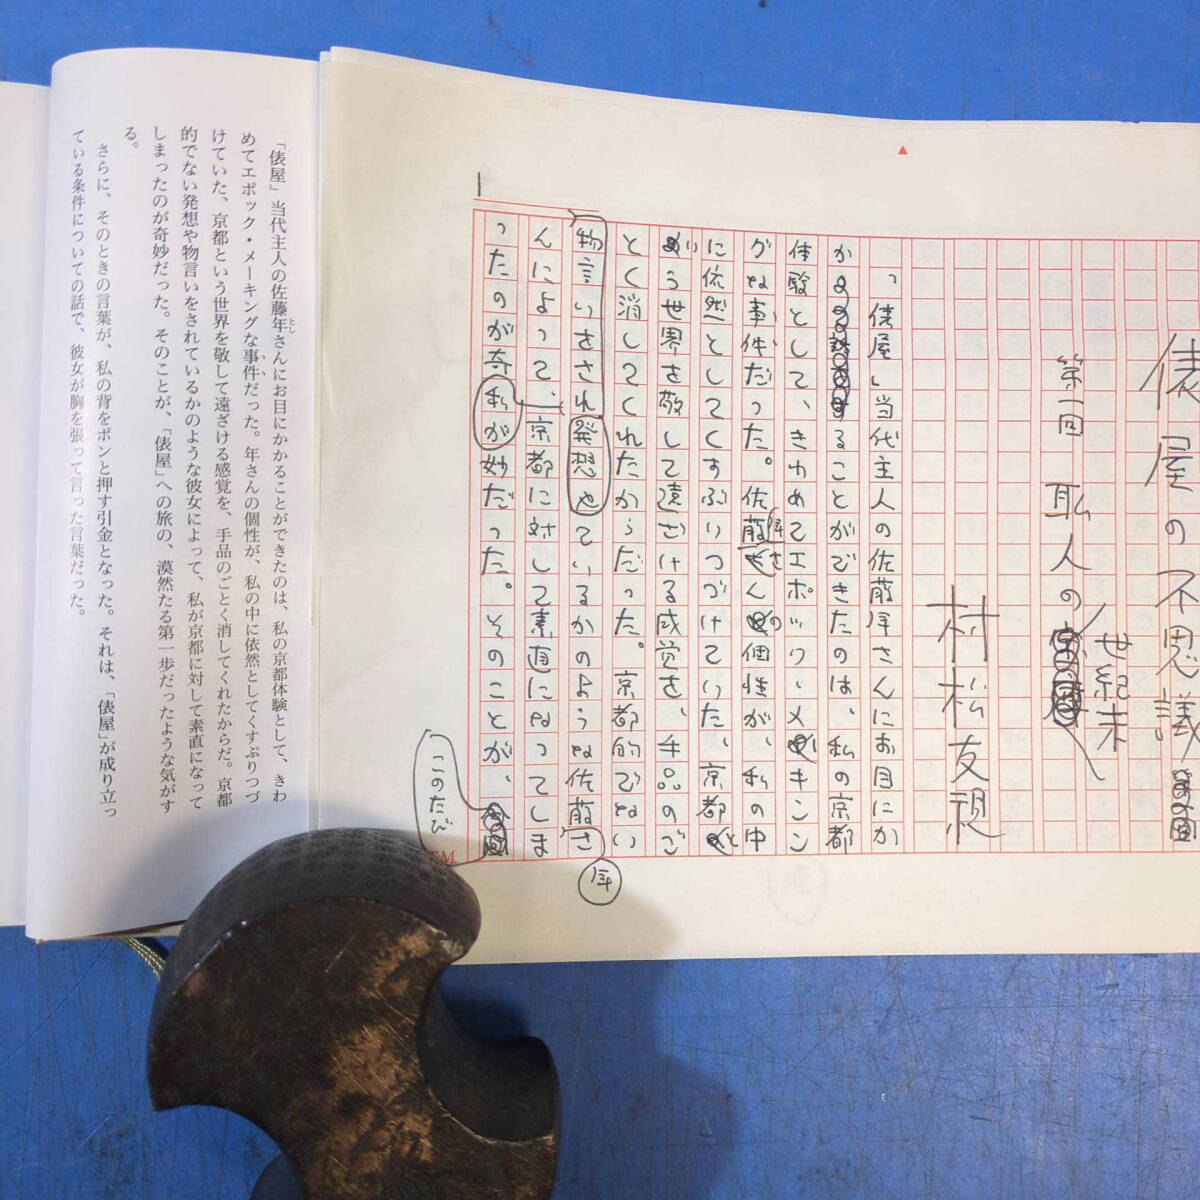 俵屋の不思議
第一回 聖人の世紀末
村松友視
「俵屋」当代主人の佐藤年さんにお目にか
かることができたのは、私の京都
体験として、きわめてエポック・メーキン
グな事件だった。佐藤年さんの個性が、私の中
に依然としてくすぶりつづけていた、京都と
いう世界を敬して遠ざける感覚を、手品のご
とく消してくれたからだった。京都的でない
発想や物言いをされているかのような佐藤年さ
んによって、私が京都に対して素直になってしま
ったのが奇妙だった。そのことが、
このたび
1
「俵屋」当代主人の佐藤年さんにお目にかかることができたのは、私の京都体験として、きわ
とし
めてエポック・メーキングな事件だった。年さんの個性が、私の中に依然としてくすぶりつづ
けていた、京都という世界を敬して遠ざける感覚を、手品のごとく消してくれたからだ。京都
的でない発想や物言いをされているかのような彼女によって、私が京都に対して素直になって
しまったのが奇妙だった。そのことが、「俵屋」への旅の、漠然たる第一歩だったような気がす
る。
さらに、そのときの言葉が、私の背をポンと押す引金となった。それは、「俵屋」が成り立っ
ている条件についての話で、彼女が胸を張って言った言葉だった。